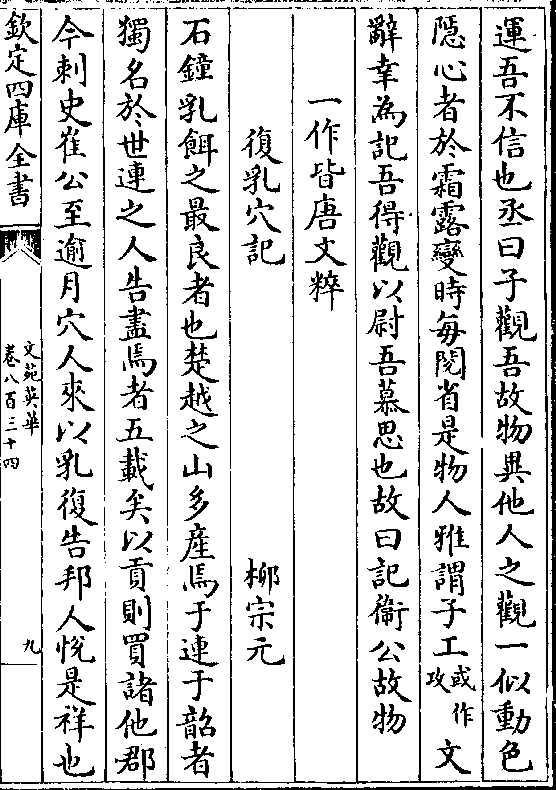 運吾不信也丞曰子觀吾故物與他人之觀一似動色
隱心者於霜露變時每閱省是物人雅謂子工或作攻文
辭幸為記吾得觀以尉吾慕思也故曰記衞公故物
一作皆唐文粹
復乳穴記 栁宗元
石鐘乳餌之最良者也楚越之山多產焉于連于韶者
獨名於世連之人告盡焉者五載矣以貢則買諸他郡
今刺史崔公至逾月穴人來以乳復告邦人悅是祥也
欽定四庫全書
文苑英華
卷八百三十四
九